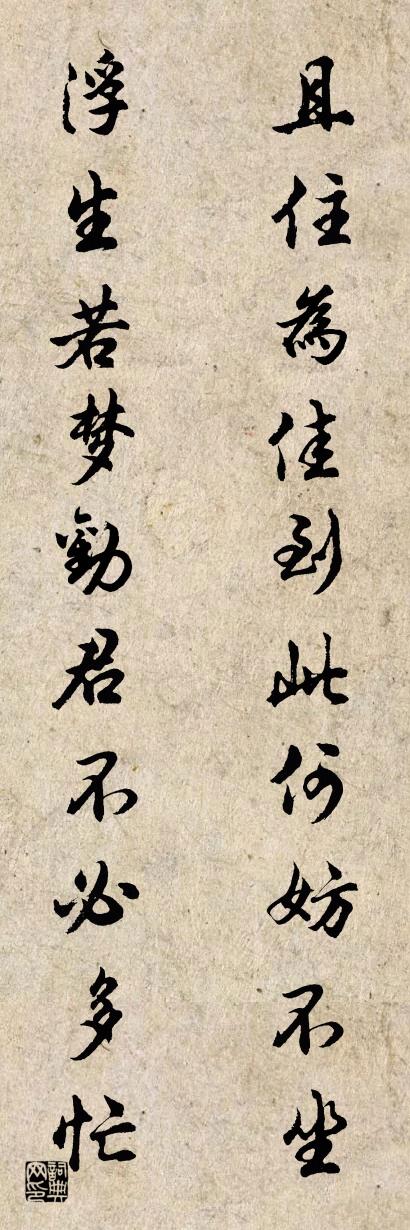 且住為佳到此何妨不坐
浮生若梦勸君不必多忙
詞典
网印